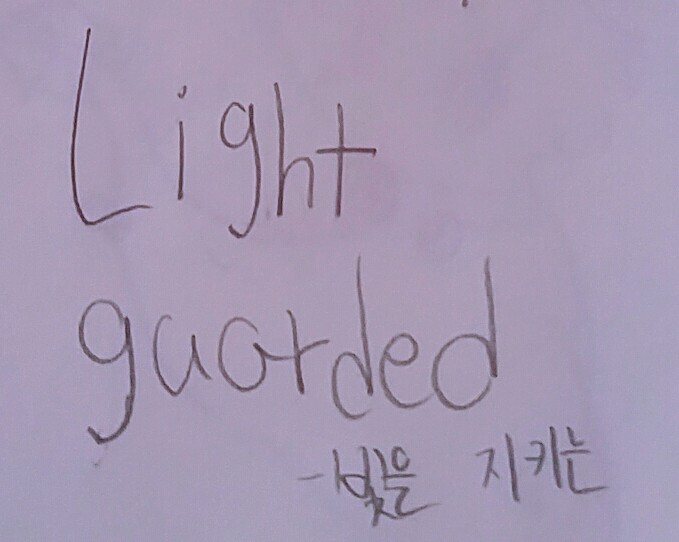 Light
guarded
-빛을 지키는